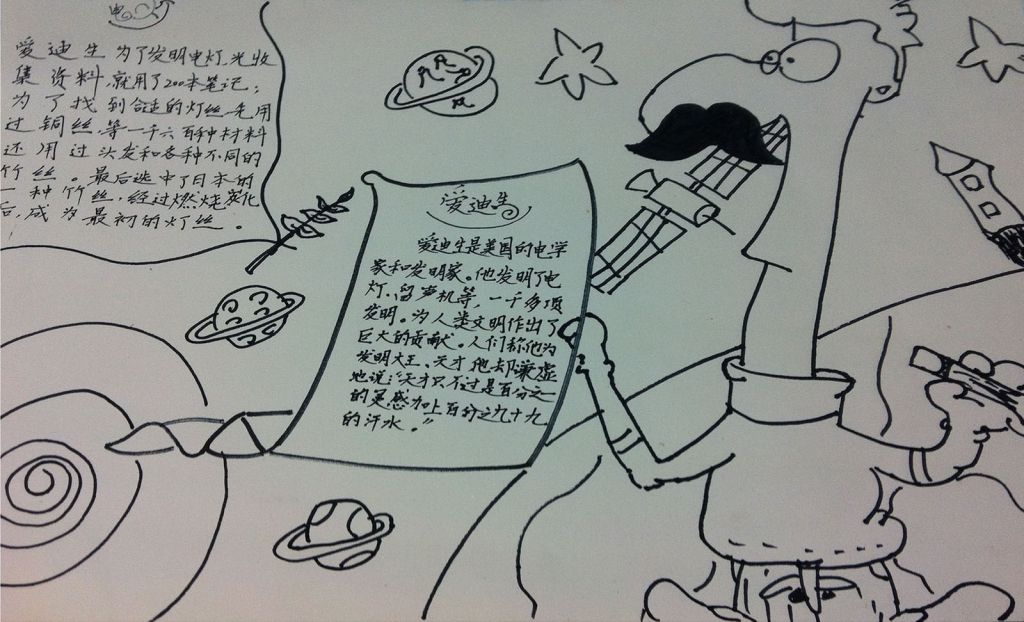 电灯
爱迪生为了发明电灯光收
集资料,就用了200本笔记;
为了找到合适的灯丝先用
过铜丝等一千六百种材料
还用过头发和各种不同的
竹丝。最后选中了日本的
一种竹丝,经过燃烧炭化
后,成为最初的灯丝。
爱迪生
爱迪生是美国的电学
家和发明家。他发明了电
灯、留声机等,一千多项
发明。为人类文明作出了
巨大的贡献。人们称他为
发明大王、天才他却谦虚
地说:“天才只不过是百分之一
的灵感加上百分之九十九
的汗水。”